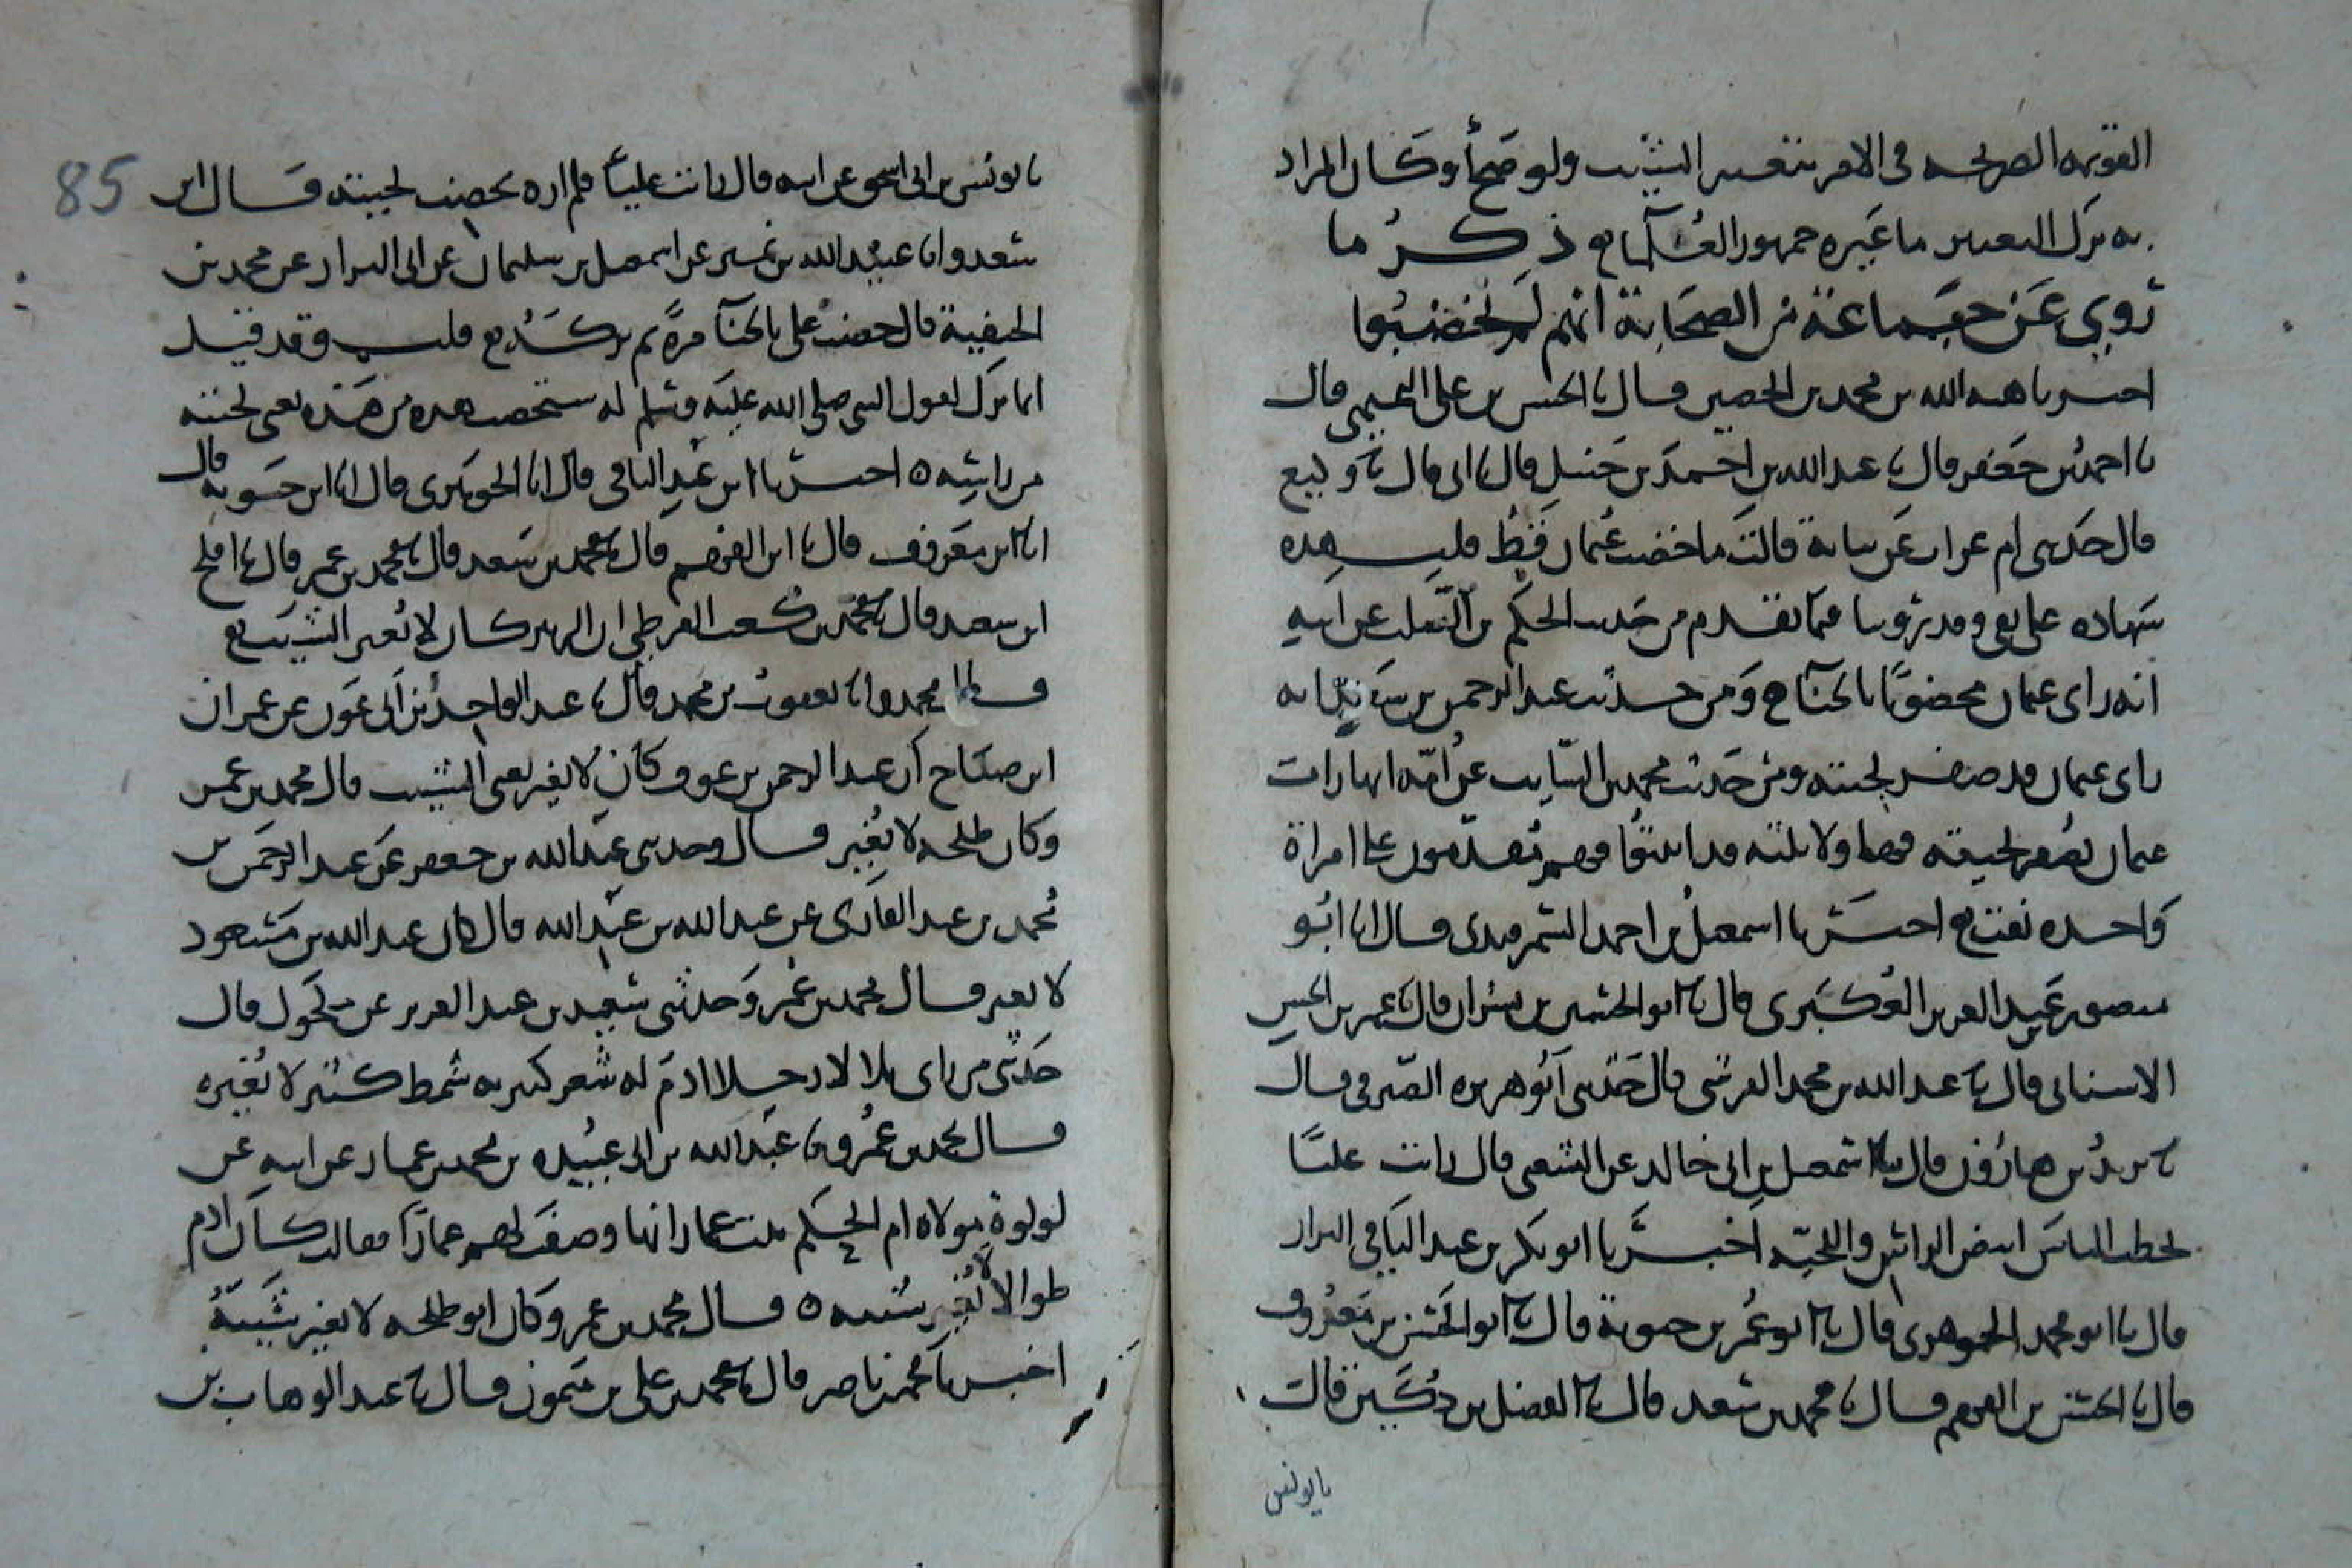 القويمه الصريحه فى الامر بتغيير الشيب ولو صحّا وكان المراد
به ترك التغيير ما غيره جمهور العلماء ذكر ما
رُوي عَن جماعة من الصحابة انهم لم يخضبوا
اخبرنا هبه الله بن محمد بن الحصين قال نا الحسن بن على التميمى قال
نا احمد بن جعفر قال نا عبد الله بن احمد بن حنبل قال نا ابى قال نا وكيع
قال حدثتنى ام عراب عن بنانة قالت ما خضب عثمان قط قلت هذه
شهاده على نفى وقد روينا فيما تقدم من حديث الحكم بن الصلت عن ابيه
انه راى عثمان مخضوبًا بالحناء ومن حديث عبد الرحمن بن سعد انه
راى عثمان قد صفر لحيته ومن حديث محمد بن السايب عن امّه انها رات
عثمان يصفر لحيته فهاولا ثلثه قد اثبتوا فهم يقدّمون على امراة
واحده نفت اخبرنا اسمعيل بن احمد السمرقندى قال انا ابو
منصور عبد العزيز العكبرى قال نا ابو الحسين بن بشران قال نا عمر بن الحسن
الاسنانى قال نا عبد الله بن محمد القرشى قال حدثنى ابو هريره الصيرفى قال
نا يزيد بن هارون قال نا اسمعيل بن ابى خالد عن الشعبى قال رايت عليًا
يخطب الناس ابيض الراس واللحيه اخبرنا ابو بكر بن عبد الباقى البزاز
قال نا ابو محمد الجوهرى قال نا ابو عمر بن حيوية قال نا ابو الحسن بن معروف
قال نا الحسين بن الفهم قال نا محمد بن سعد قال نا الفضل بن دكين قال
نا يونس
85
نا يونس بن ابى اسحق عن ابيه قال رايت عليًا فلم اره يخضب لحيته قال ابن
سعد وانا عبيد الله بن نمير عن اسمعيل بن سلمان عن ابى البزار عن محمد بن
الحنفية قال خضب على بالحنآ مرة ثم تركه قلت وقد قيل
انما ترك لقول النبى صلى الله عليه وسلم له ستخضب هذه من هذه يعنى لحيته
من راسه ه اخبرنا ابن عبد الباقى قال انا الجوهرى قال انا ابن حيويه قال
انا ابن معروف قال نا ابن الفهم قال نا محمد بن سعد قال نا محمد بن عمر قال نا افلح
ابن سعيد قال نا محمد بن كعب القرظى ان الزبير كان لا يغير الشيب
قال محمد وانا يعقوب بن محمد قال نا عبد الواحد بن ابى عون عن عمران
ابن مناح ان عبد الرحمن بن عوف كان لا يغير يعنى الشيب قال محمد بن عمر
وكان طلحه لا يغير قال وحدثنى عبد الله بن جعفر عن عبد الرحمن بن
محمد بن عبد القارى عن عبد الله بن عبد الله قال كان عبد الله بن مسعود
لا يغير قال محمد بن عمر وحدثنى سعيد بن عبد العزيز عن مكحول قال
حدثنى من راى بلالا رجلا ادم له شعر كثير به شمط كثير لا يغيره
قال محمد بن عمر ونا عبد الله بن ابى عبيده بن محمد بن عمار عن ابيه عن
لولوة مولاه ام الحكم بنت عمار انها وصفت لهم عمارًا فقالت كان ادم
طوالا لا يغير شيبه ه قال محمد بن عمر وكان ابو طلحه لا يغير شيبهُ
اخبرنا محمد بن ناصر قال نا محمد بن على بن ميمون قال نا عبد الوهاب بن